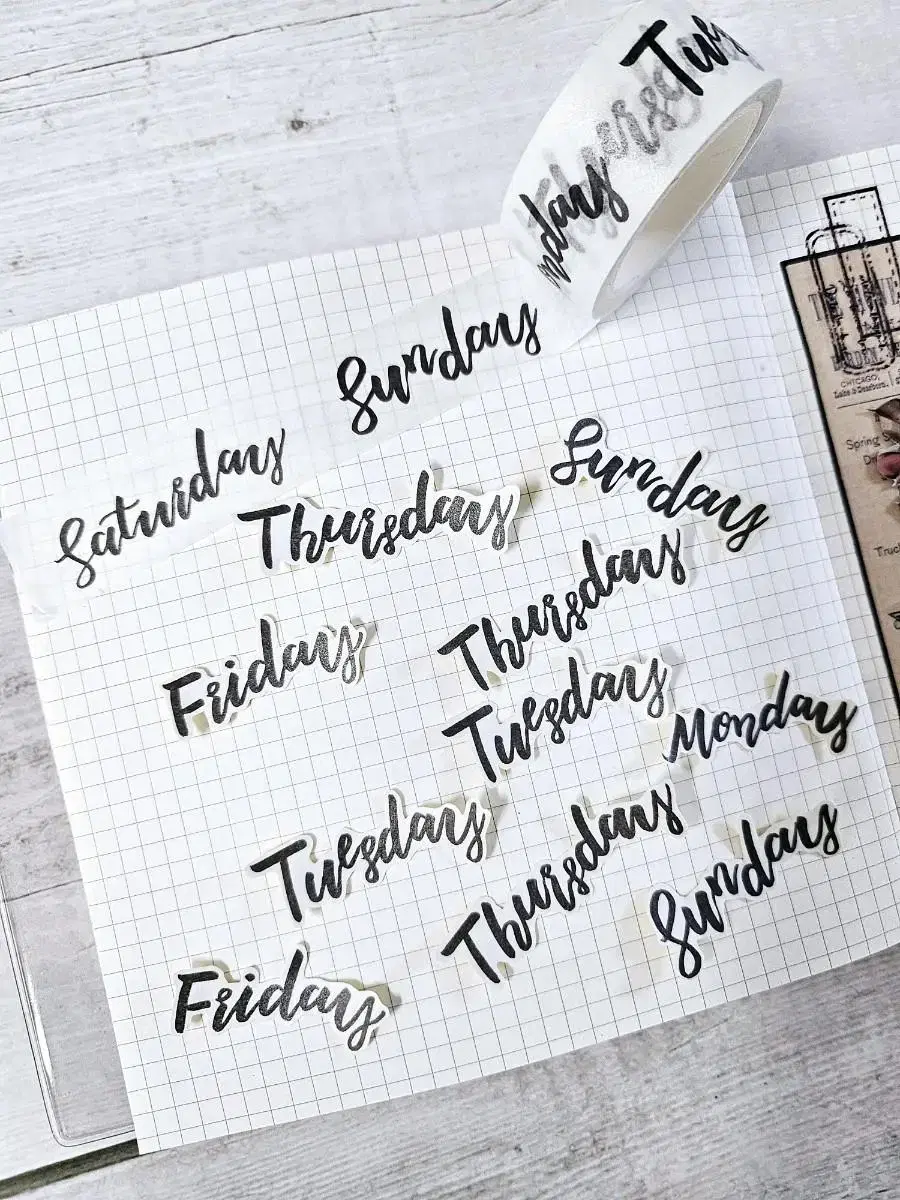 Tue
nday
Sunday
Saturday
Thursday
Sunday
Friday
Thursday
Tuesday
Monday
Tuesday
Thursday
Sunday
Friday
CHICAGO,
Spring S
Truc